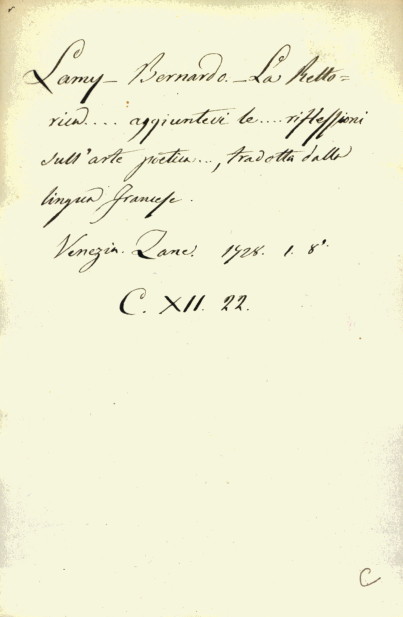 Lamy - Bernardo. - La Retto=
rica .... aggiuntevi le .... riflessioni
sull'arte poetica ..., tradotta dalla
lingua francese.
Venezia. Zane. 1728. 1. 8°.
C. XII. 22.
C